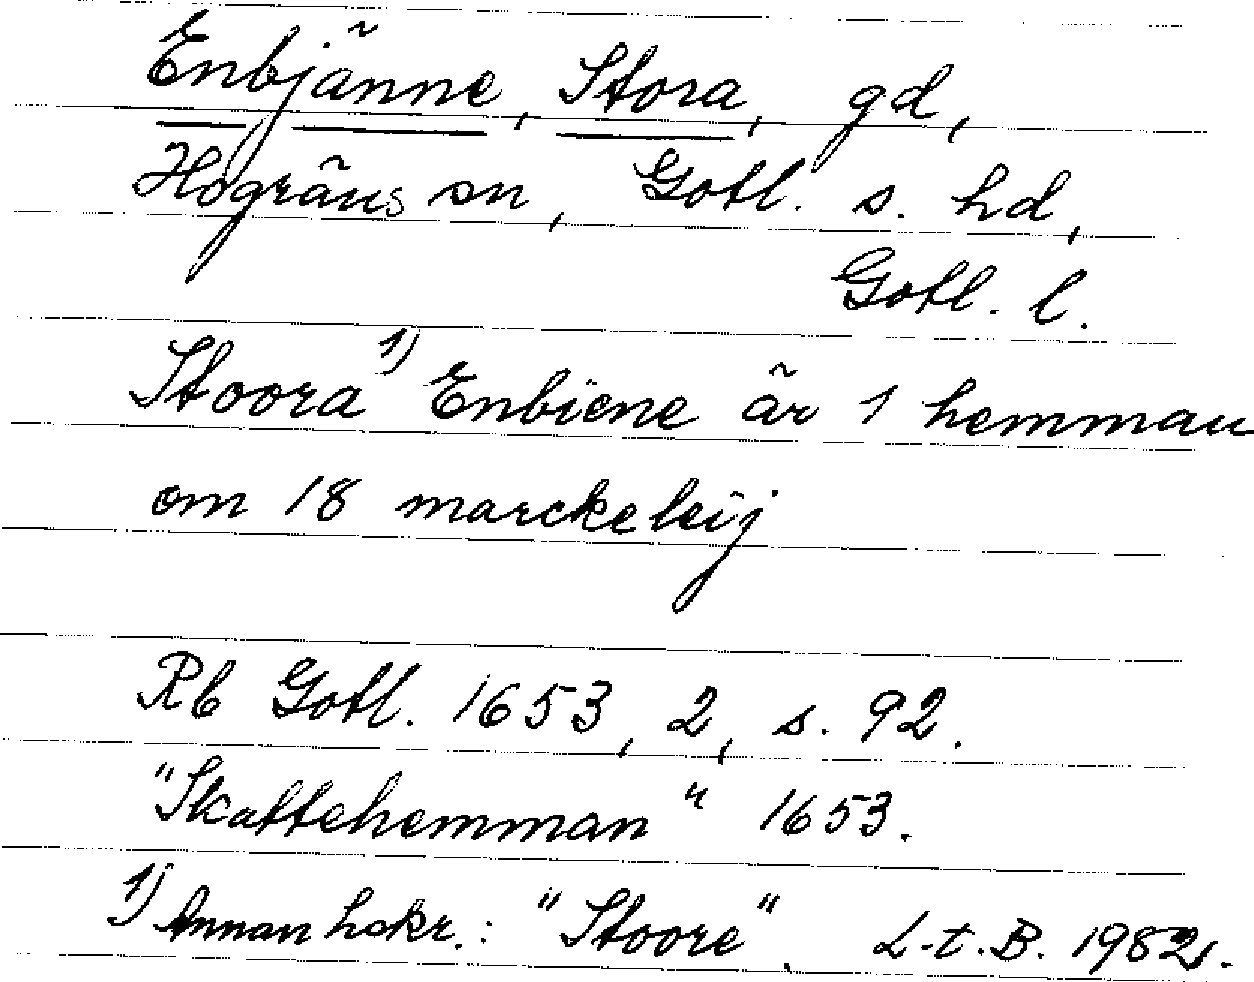 Enbjänne, Stora, gd,
Hogräns sn, Gotl. s. hd,
Gotl. l.
Stoora 1) Enbiene är 1 hemman
om 18 marckeleij
Rb Gotl. 1653, 2, s. 92.
"Skattehemman" 1653.
1) Annan hskr.: "Stoore". L-t. B. 1982.